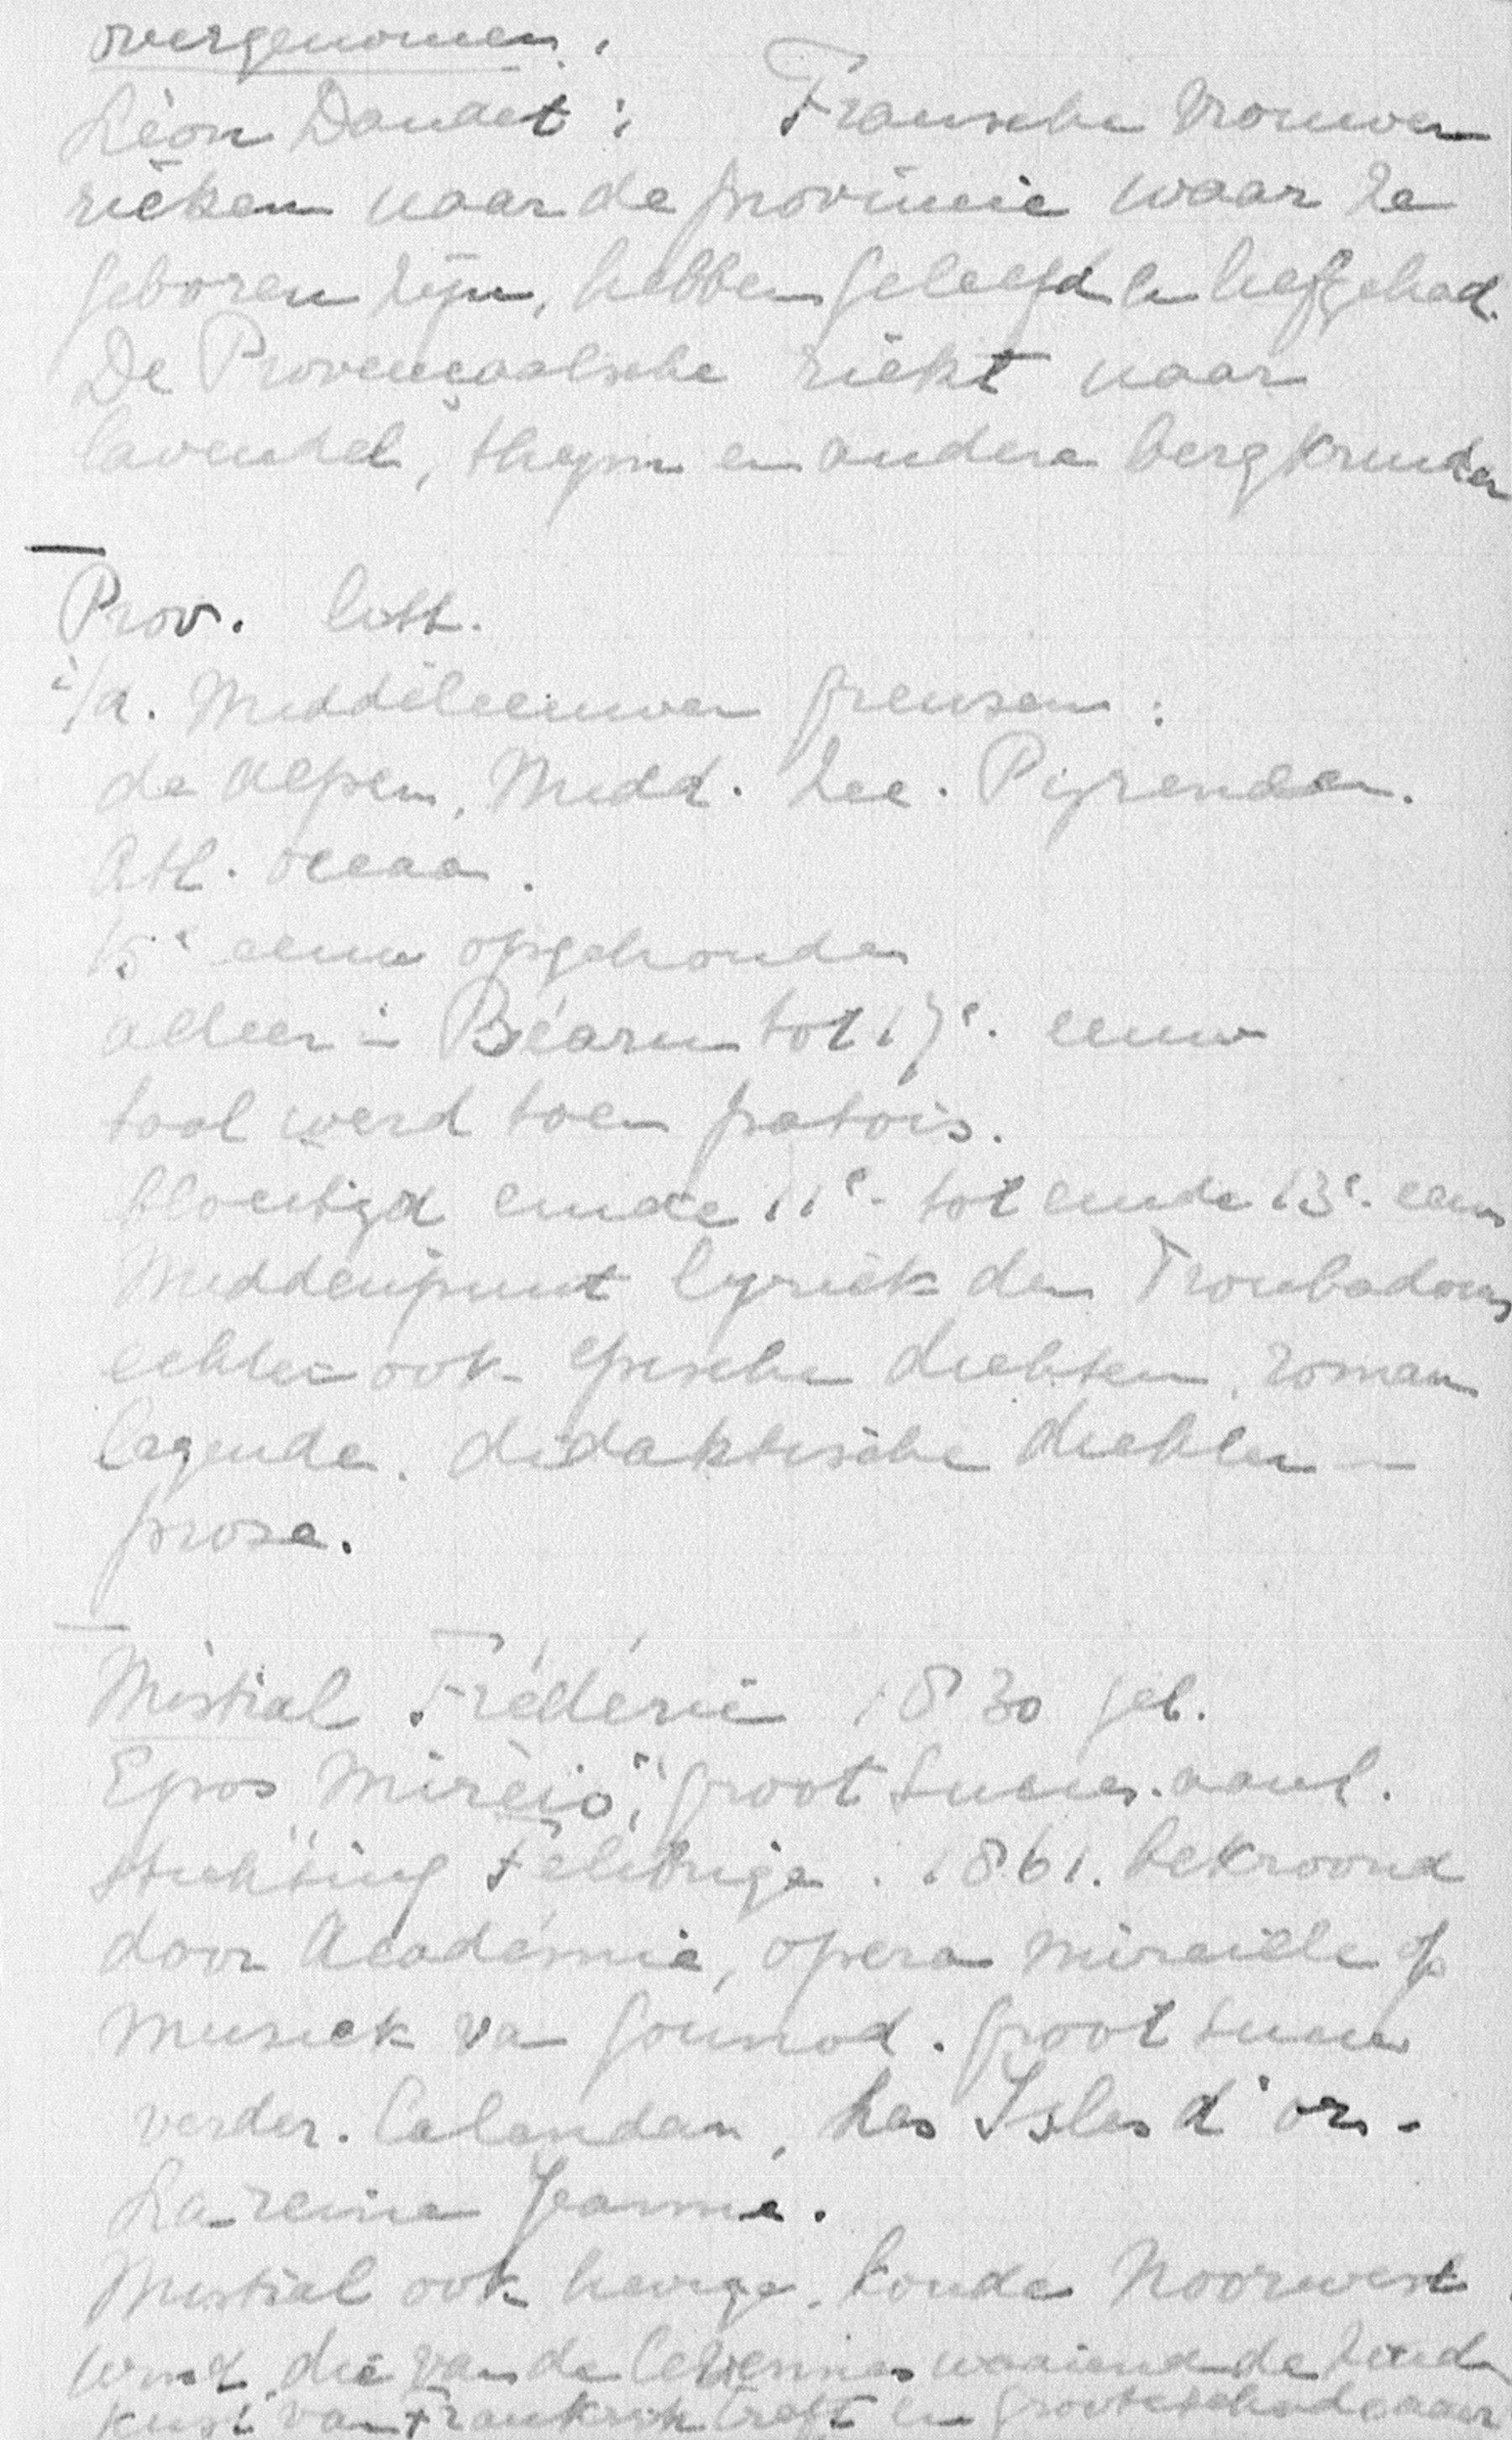 overgenomen.
Léon Daudet: Fransche vrouwen
rieken naar de provincie waar ze
geboren zijn, hebben geleefd en liefgehad.
De Provençaalsche riekt naar
lavendel, thym en andere bergkruiden
Prov. litt.
i/d. Middeleeuwen grensen:
de Alpen, Midd. Zee. Pyreneeën.
Atl. oceaan.
15e eeuw opgehouden
alleen in Béarn tot 17e. eeuw
taal werd toen patois.
bloeitijd einde 11e. tot einde 13e. eeuw
Middenpunt lyriek der Troubadours
echter ook epische dichten, roman
legende. didaktische dichten en
prosa.
Mistral Frédéric 1830 geb.
Epos Mirèio, groot succes. aanl.
stichting Félibrige. 1861. bekroond
door Académie, opera Mireille op
musiek van Gounod. groot succes
verder. Calendau, Les Isles d'or.
La reine Jeanne.
Mistral ook hevige, koude Noordwest
wind die van de Cevennes waaiend de Zuid
kust van Frankrijk treft en groote schade aan